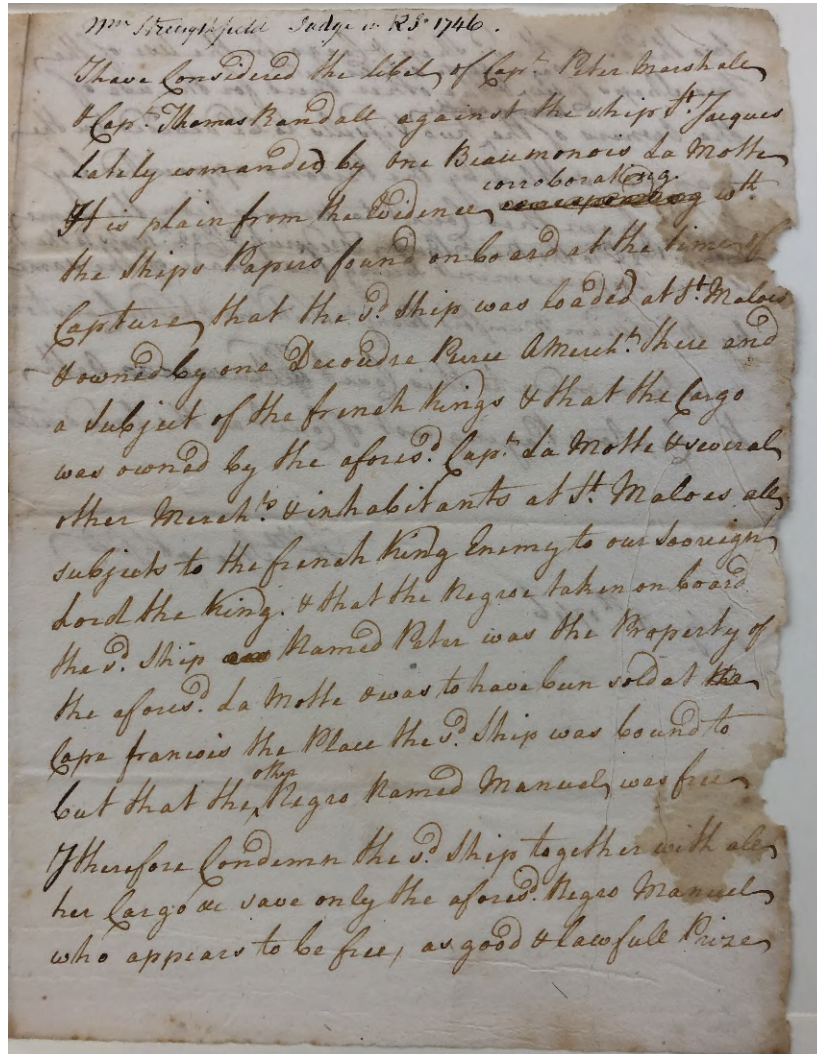 Wm Strengthfield Judge in R I 1746.
I have Considered the libel of Capt. Peter Marshall
& Capt. Thomas Randall against the ship St. Jacques
lately comanded by one Beaumonois La Motte
corroborating
It is plain from the Evidence, wth
the Ships Papers found on board at the time of
Capture, that the sd. Ship was loaded at St. Maloes
& owned by one Decoudre Peree A Mercht. there and
a Subject of the french Kings & that the Cargo
was owned by the aforesd. Capt. La Motte & several
other Mercht.s & inhabitants at St. Maloes all
subjects to the french King Enemy to our Sovreign
Lord the King. & that the Negroe taken on board
the sd. Ship Named Peter was the Property of
the aforesd. La Motte & was to have been sold at the
Cape francois the Place the sd. Ship was bound to
other
but that the Negro Named Manuel, was free
I therefore Condemn the sd. Ship together with all
her Cargo &c save only the aforesd. Negro Manuel
who appears to be free, as good & lawfull Prize